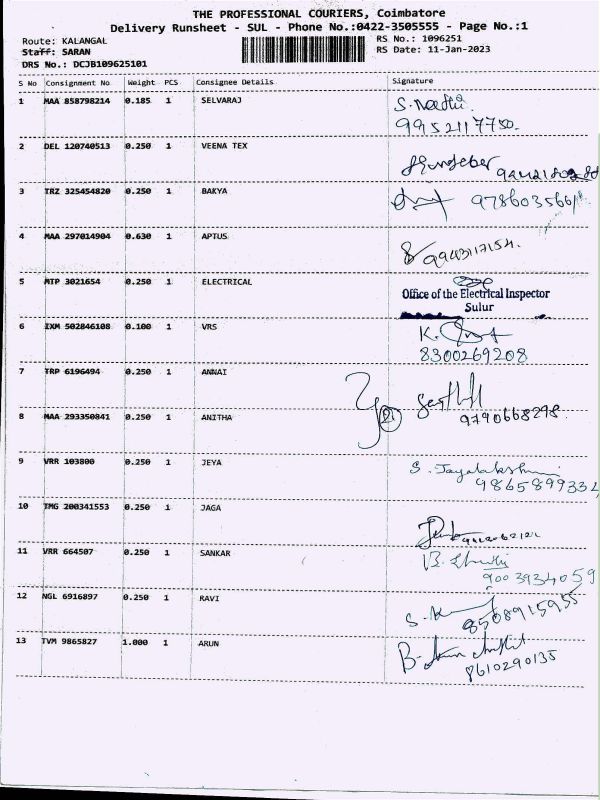 THE PROFESSIONAL COURIERS, Coimbatore
Delivery Runsheet - SUL - Phone No.:0422-3505555 - Page No.:1
Route: KALANGAL RS No.: 1096251
Staff: SARAN RS Date: 11-Jan-2023
DRS No.: DCJB109625101
S No Consignment No Weight PCS Consignee Details Signature
1 MAA 858798214 0.185 1 SELVARAJ
9952117750.
2 DEL 120740513 0.250 1 VEENA TEX
3 TRZ 325454820 0.250 1 BAKYA
4 MAA 297014904 0.630 1 APTUS
9943117154.
5 MTP 3021654 0.250 1 ELECTRICAL
Office of the Electrical Inspector
Sulur
6 IXM 502846108 0.100 1 VRS
8300269208
7 TRP 6196494 0.250 1 ANNAI
8 MAA 293350841 0.250 1 ANITHA 21
9790668298
9 VRR 103800 0.250 1 JEYA
S. Jayalakshmi
9865899332
10 TMG 200341553 0.250 1 JAGA
11 VRR 664507 0.250 1 SANKAR
9003934059
12 NGL 6916897 0.250 1 RAVI
8508915955
13 TVM 9865827 1.000 1 ARUN
8610290135